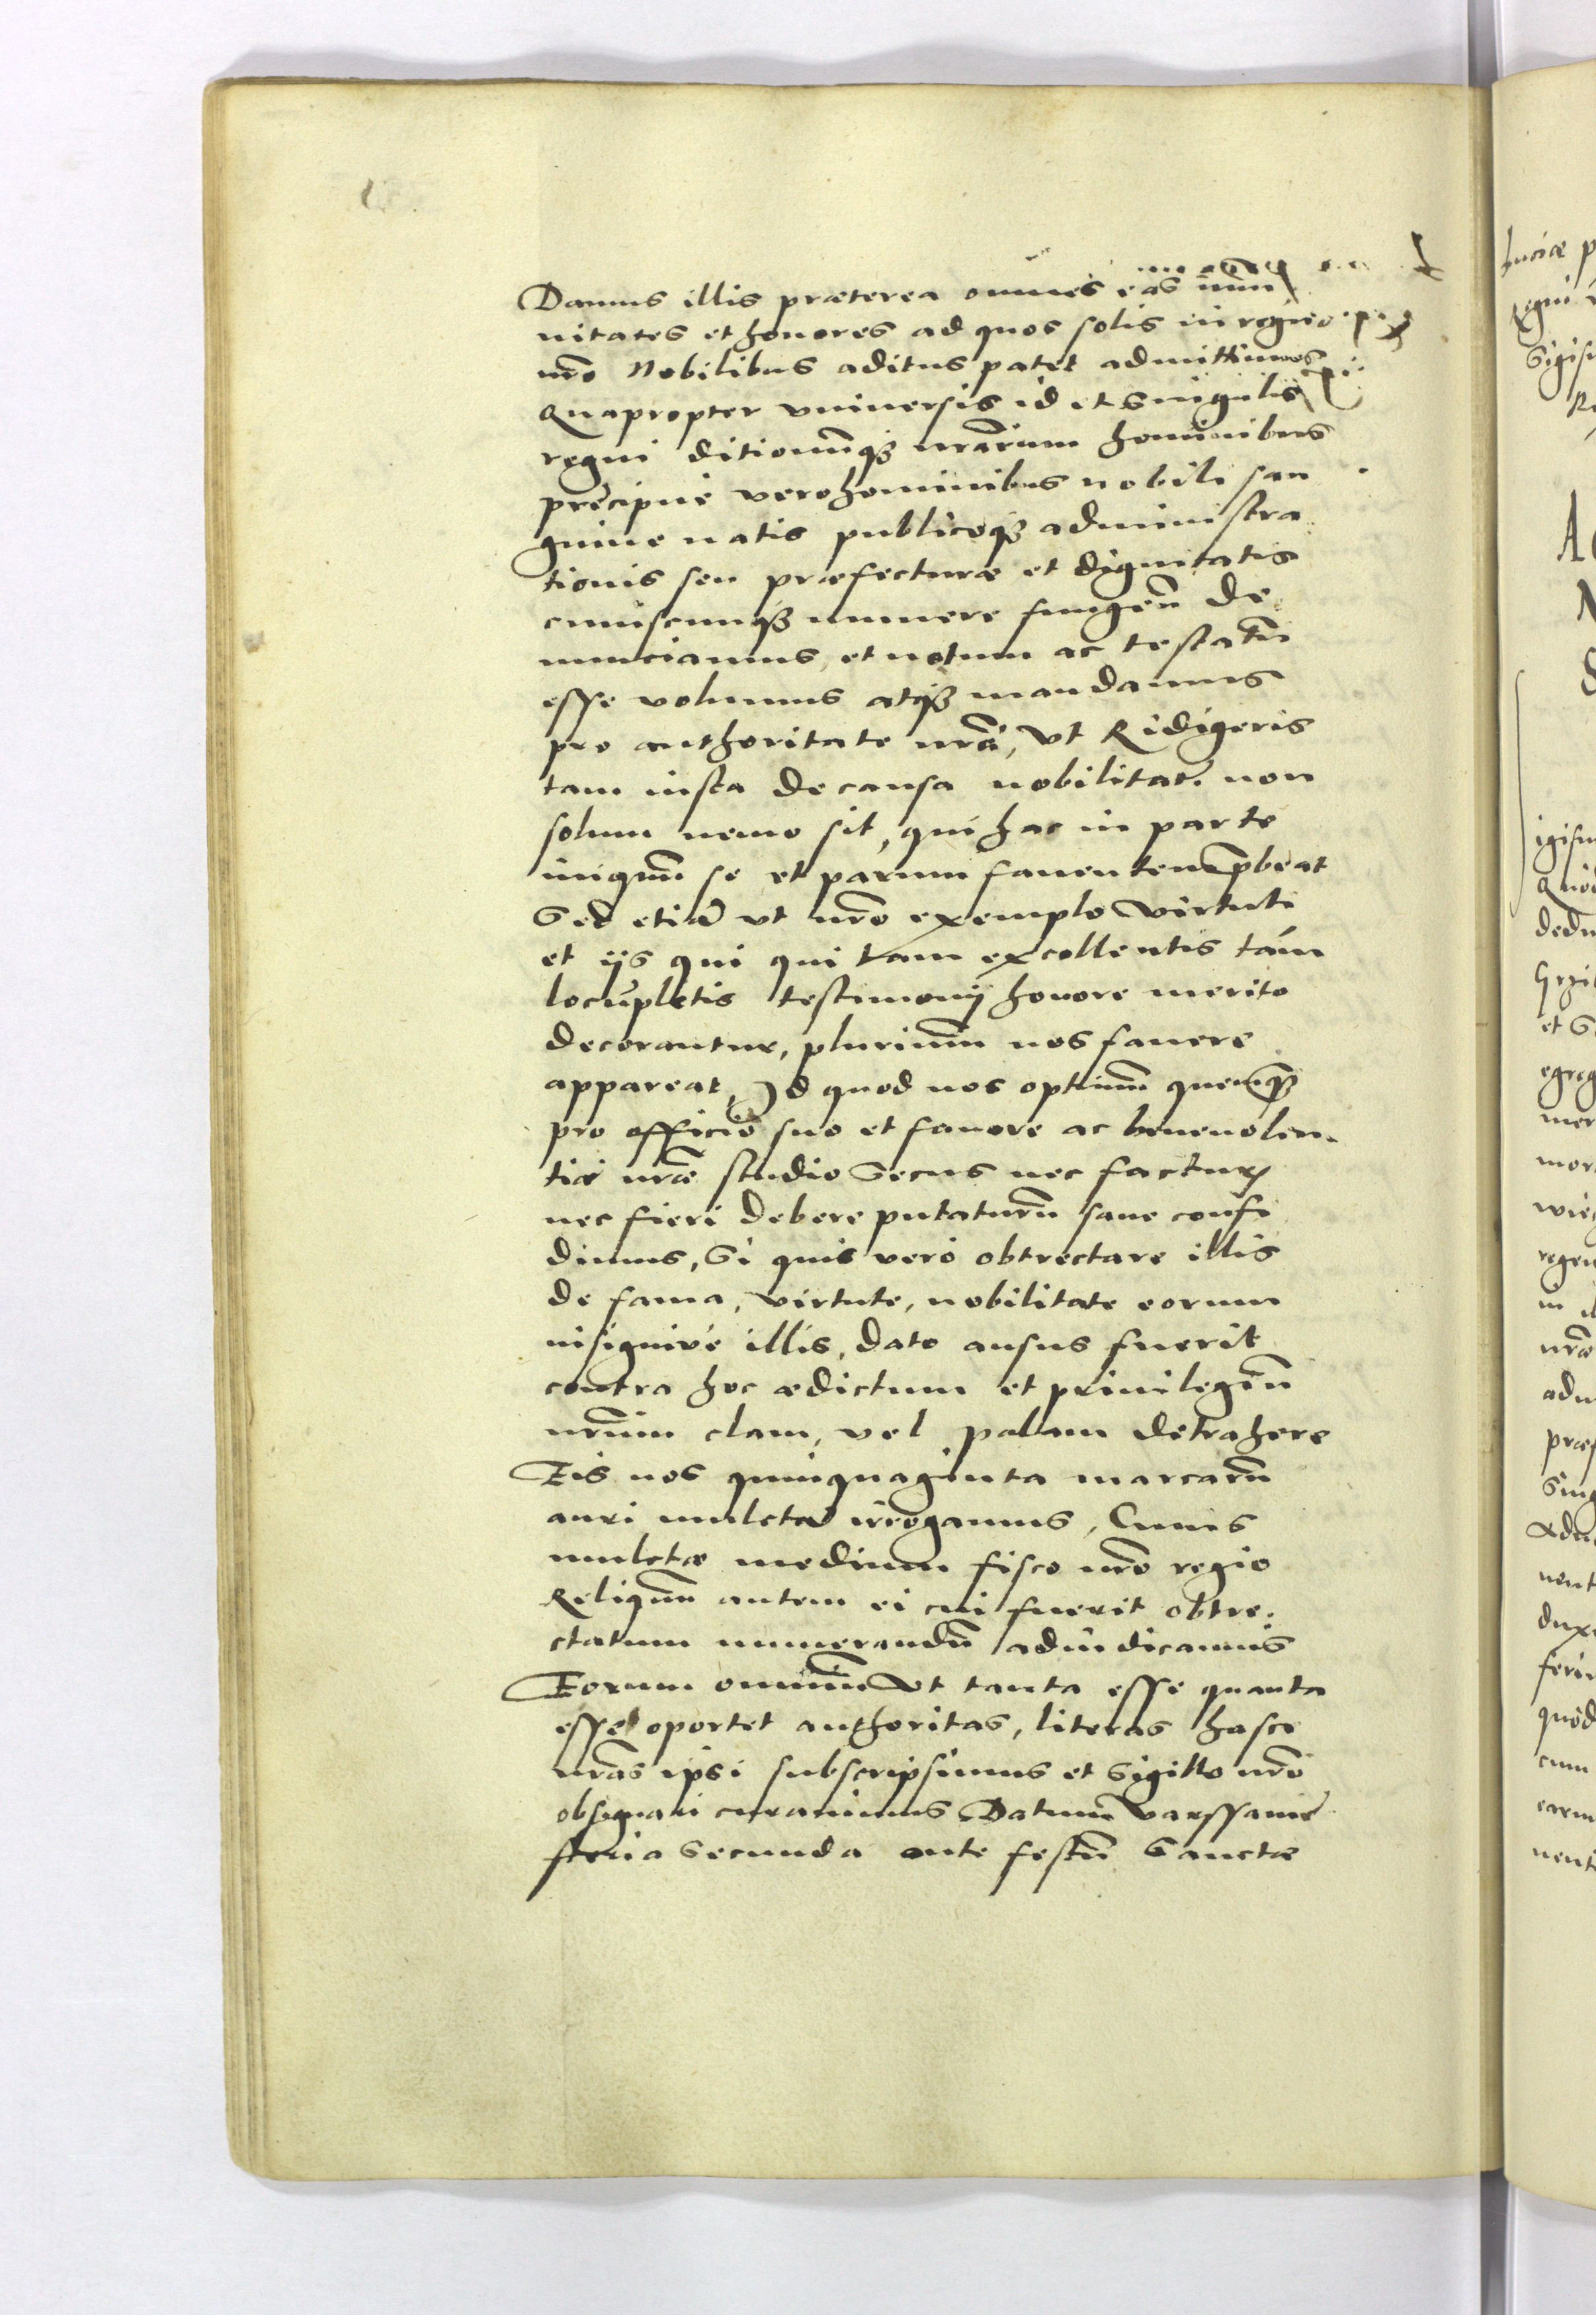 Damus illis præterea omnes eas im̄u
nitates et honores ad quos solis in regno
nr̄o Nobilibus aditus patet admittimus
Quapropter vniuersis id et singulis
regni ditionūq₃ nr̄arum hominibus
precipue vero hominibus nobili san
guine natis publiceq₃ administra
tionis seu præfecturæ et dignitatis
cuiuscunq₃ munere fungen̄ de
nunciamus, et notum ac testatū
esse volumus atq₃ mandamus
pro authoritate nr̄a, vt Ridigeris
tam iusta de causa nobilitat. non
solum nemo sit, qui hac in parte
iniquū se et parum fauentem p̄beat
Sed etiā vt nr̄o exemplo virtuti
et ijs qui qui tam excellentis tám
locupletis testimonij honore merito
decorantur, plurimū nos fauere
appareat, Id quod nos optimū quemq₃
pro officio suo et fauore ac beneuolen
tiæ nr̄æ studio secus nec factur
nec fieri debere putaturū sane confi
dimus, Si quis vero obtrectare illis
de fama, virtute, nobilitate eorum
insigniue illis, dato ausus fuerit
contra hoc ædictum et priuilegiū
nr̄um clam, vel palam detrahere
Eis nos quinquaginta marcarū
auri mulctā irrogamus, Cuius
mulctæ medium fisco nr̄o regio
Reliquū autem ei cui fuerit obtre
ctatum numerandū adiudicamus
Eorum omniū Vt tanta esse quanta
esse oportet authoritas, literas hasce
nr̄as ipsi subscripsimus et sigillo nr̄o
obsignari curauimus Datum varssauiæ
feria secunda ante festū Sanctæ